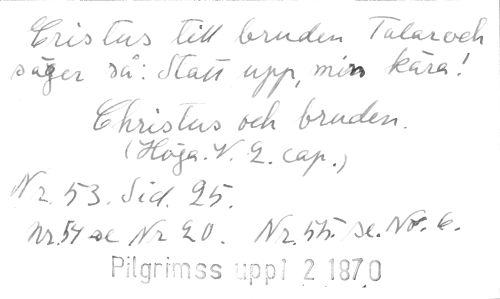 Cristus till bruden Talar och
säger så: Statt upp, min kära!
Christus och bruden.
(Höga. V. 2. cap.)
Nr. 53. Sid. 25.
Nr. 54 se Nr 20. Nr. 55. se. No. 6.
Pilgrimss uppl 2 1870